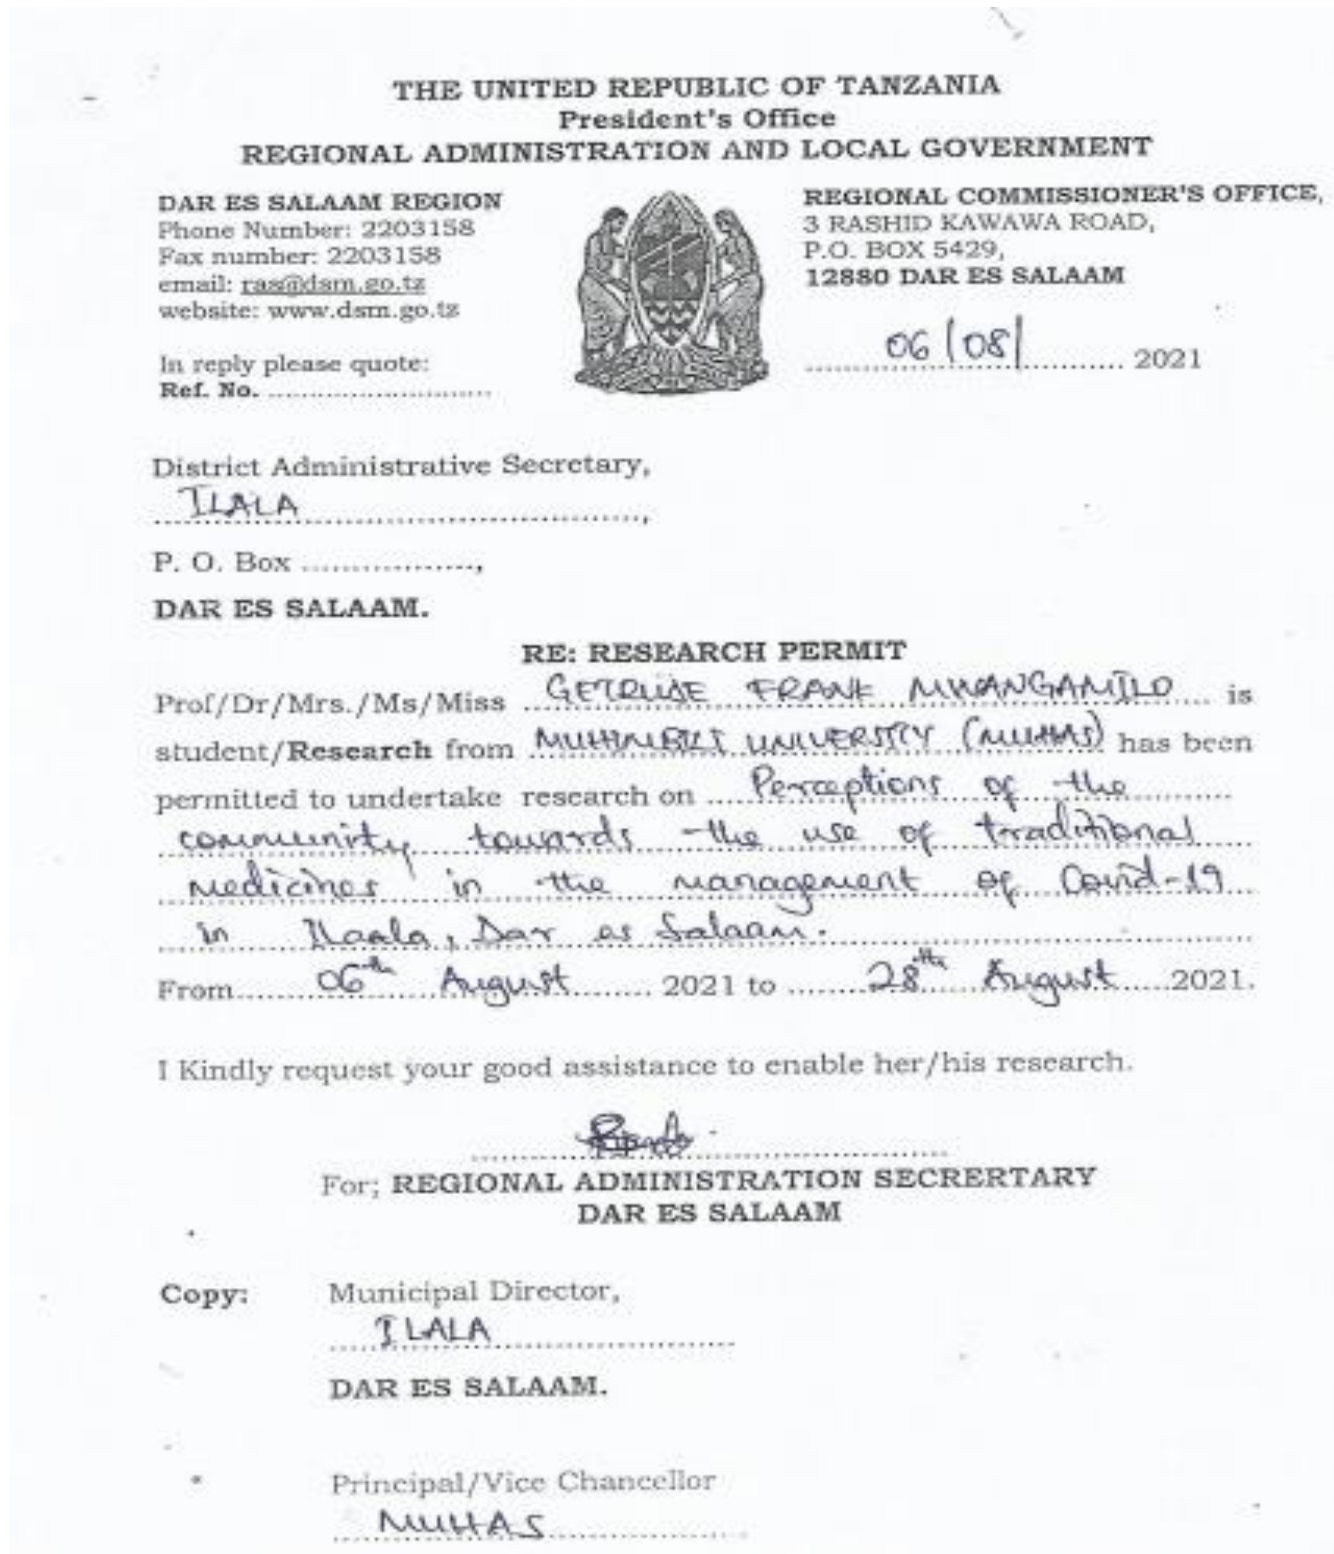 THE UNITED REPUBLIC OF TANZANIA
President's Office
REGIONAL ADMINISTRATION AND LOCAL GOVERNMENT
DAR ES SALAAM REGION
Phone Number: 2203158
Fax number: 2203158
email: ras@dsm.go.tz
website: www.dsm.go.tz
In reply please quote:
Ref. No. ..............................
REGIONAL COMMISSIONER'S OFFICE,
3 RASHID KAWAWA ROAD,
P.O. BOX 5429,
12880 DAR ES SALAAM
06/08/ 2021
District Administrative Secretary,
ILALA,
P. O. Box ..................,
DAR ES SALAAM.
RE: RESEARCH PERMIT
Prof/Dr/Mrs./Ms/Miss FRANK is
student/Research from MUHIMBILI UNIVERSITY (MUHAS) has been
permitted to undertake research on Perceptions of the
community towards the use of traditional
medicines in the management of Covid-19
in Ilaala, Dar es Salaam.
From 06th August 2021 to 28th August 2021.
I Kindly request your good assistance to enable her/his research.
For; REGIONAL ADMINISTRATION SECRERTARY
DAR ES SALAAM
Copy: Municipal Director,
ILALA
DAR ES SALAAM.
Principal/Vice Chancellor
MUHAS